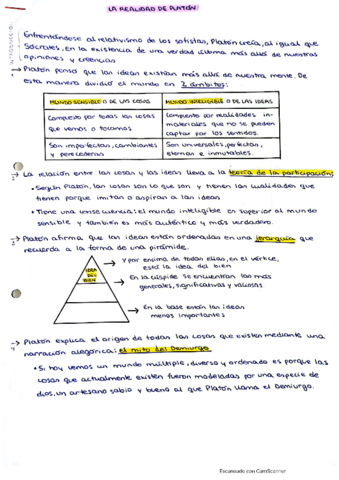 LA REALIDAD DE PLATÓN
Enfrentándose al relativismo de los sofistas, Platón creía, al igual que
Sócrates, en la existencia de una verdad última más allá de nuestras
opiniones y creencias
→ Platón pensó que las ideas existían más allá de nuestra mente. De
esta manera dividió el mundo en 2 ámbitos:
MUNDO SENSIBLE O DE LAS COSAS
MUNDO INTELIGIBLE O DE LAS IDEAS
Compuesto por todas las cosas
que vemos o tocamos
Compuesto por realidades in-
materiales que no se pueden
captar por los sentidos.
Son imperfectas, cambiantes
y perecederas
Son universales, perfectas,
eternas e inmutables.
→ La relación entre las cosas y las ideas lleva a la teoría de la participación:
• Según Platón, las cosas son lo que son y tienen las cualidades que
tienen porque imitan o aspiran a las ideas.
• Tiene una consecuencia: el mundo inteligible es superior al mundo
sensible y también es más auténtico y más verdadero.
→ Platón afirma que las ideas están ordenadas en una jerarquía que
recuerda a la forma de una pirámide.
IDEA
DEL
BIEN
→ Y por encima de todas ellas, en el vértice,
está la idea del bien
→ En la cúspide se encuentran las más
generales, significativas y valiosas
→ En la base están las ideas
menos importantes
→ Platón explica el origen de todas las cosas que existen mediante una
narración alegórica: el mito del Demiurgo.
• Si hoy vemos un mundo múltiple, diverso y ordenado es porque las
cosas que actualmente existen fueron modeladas por una especie de
dios, un artesano sabio y bueno al que Platón llama el Demiurgo.
Escaneado con CamScanner